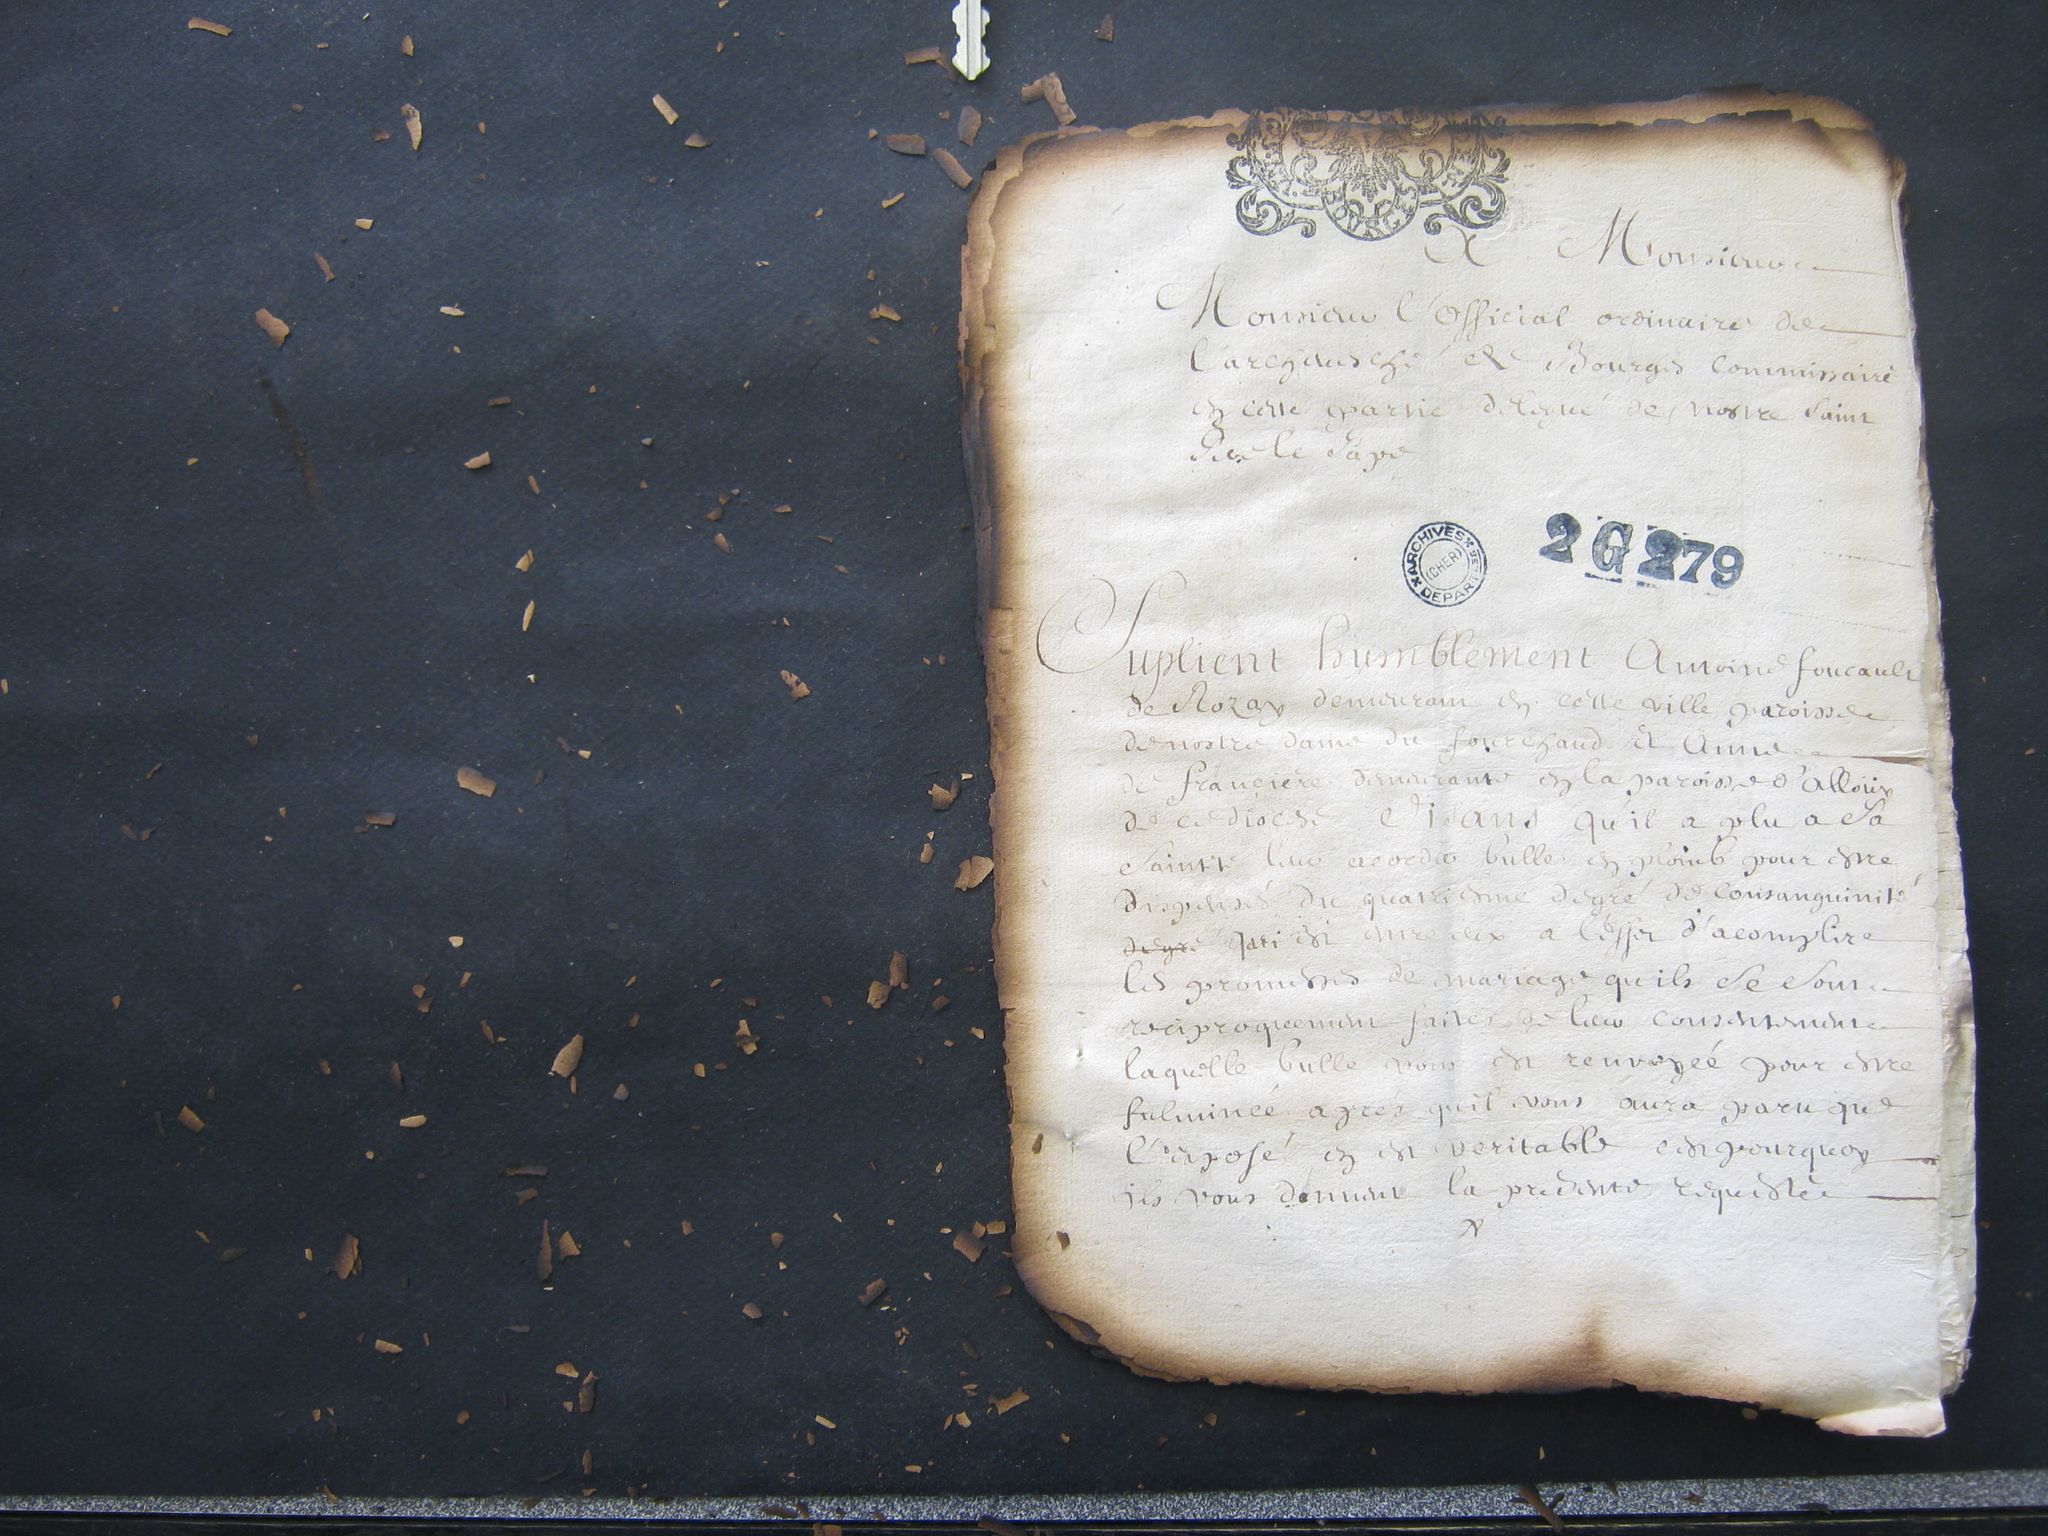 BOURGES
A Monsieur
Monsieur l'Official ordinaire de
l'archevesché de Bourges Commissaire
en cette partie delegué de nostre Saint
Pere le Pape
ARCHIVES DEPARTLES
(CHER)
2 G 279
Suplient humblement Antoine foucault
de Rozay demeurant en cette ville paroisse
de nostre dame du fourchaud et Anne
de francière demeurante en la paroisse d'Allouy
de ce diocese Disans qu'il a plu a Sa
Sainteté leur acorder bulle en plomb pour estre
dispensés du quatriesme degré de Consanguinité
degré qui est entre eux a l'effet d'acomplire
les promesses de mariage qu'ils Se Sont
reciproquement faites de leur consentement
laquelle bulle vous est renvoyéé pour estre
fulminéé aprés qu'il vous aura paru que
l'exposé en est veritable c'est pourquoy
ils vous donnent la presente requeste